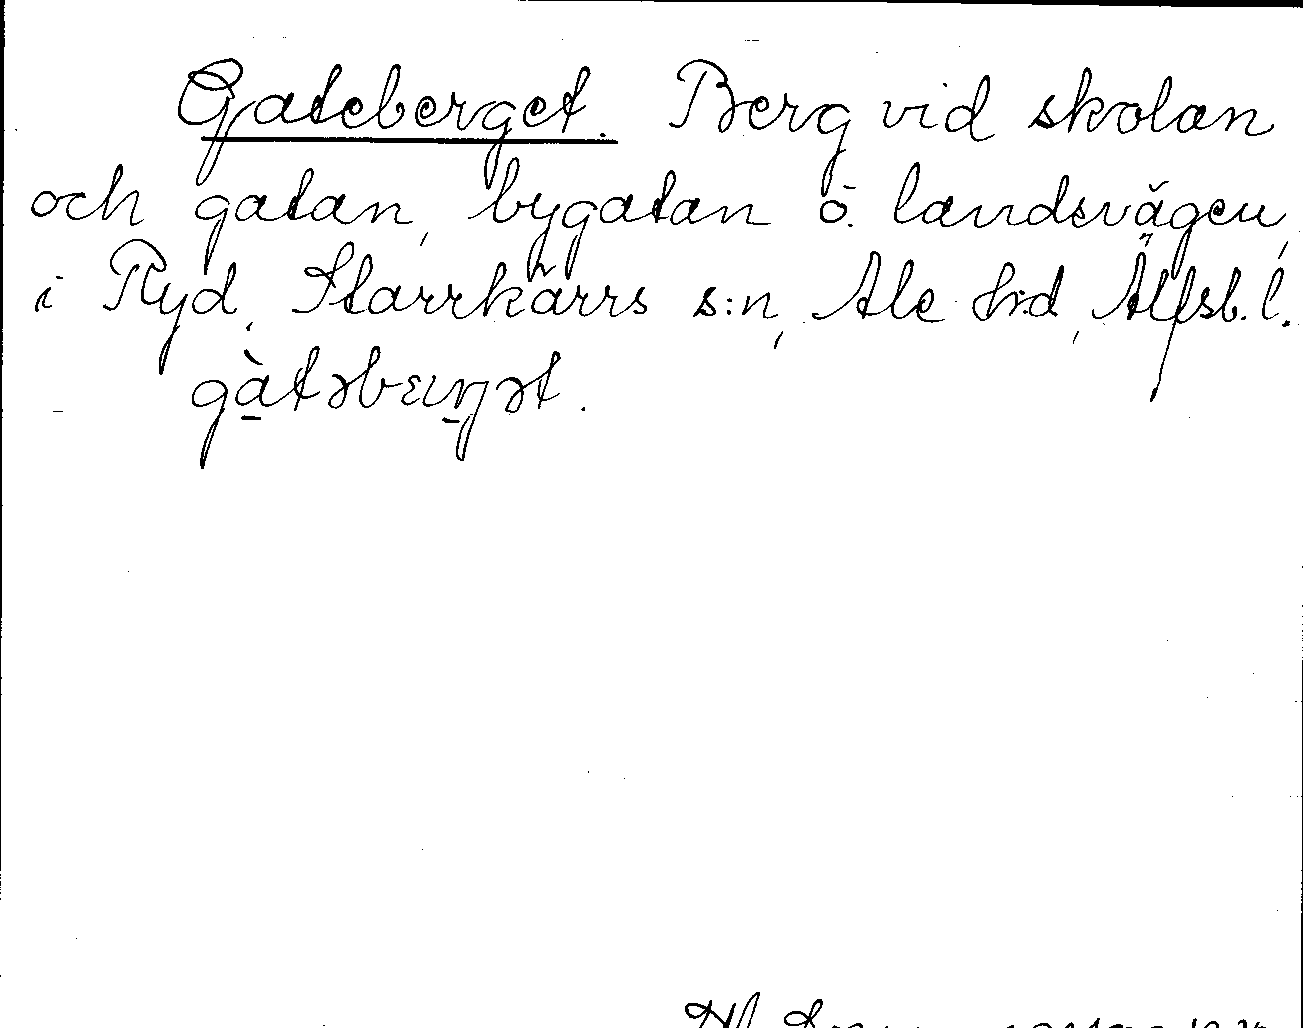 Gateberget. Berg vid skolan
och gatan, bygatan ö. landsvägen,
i Ryd, Starrkärrs s:n, Ale h:d, Älfsb. l.
gàtəbæŋət.